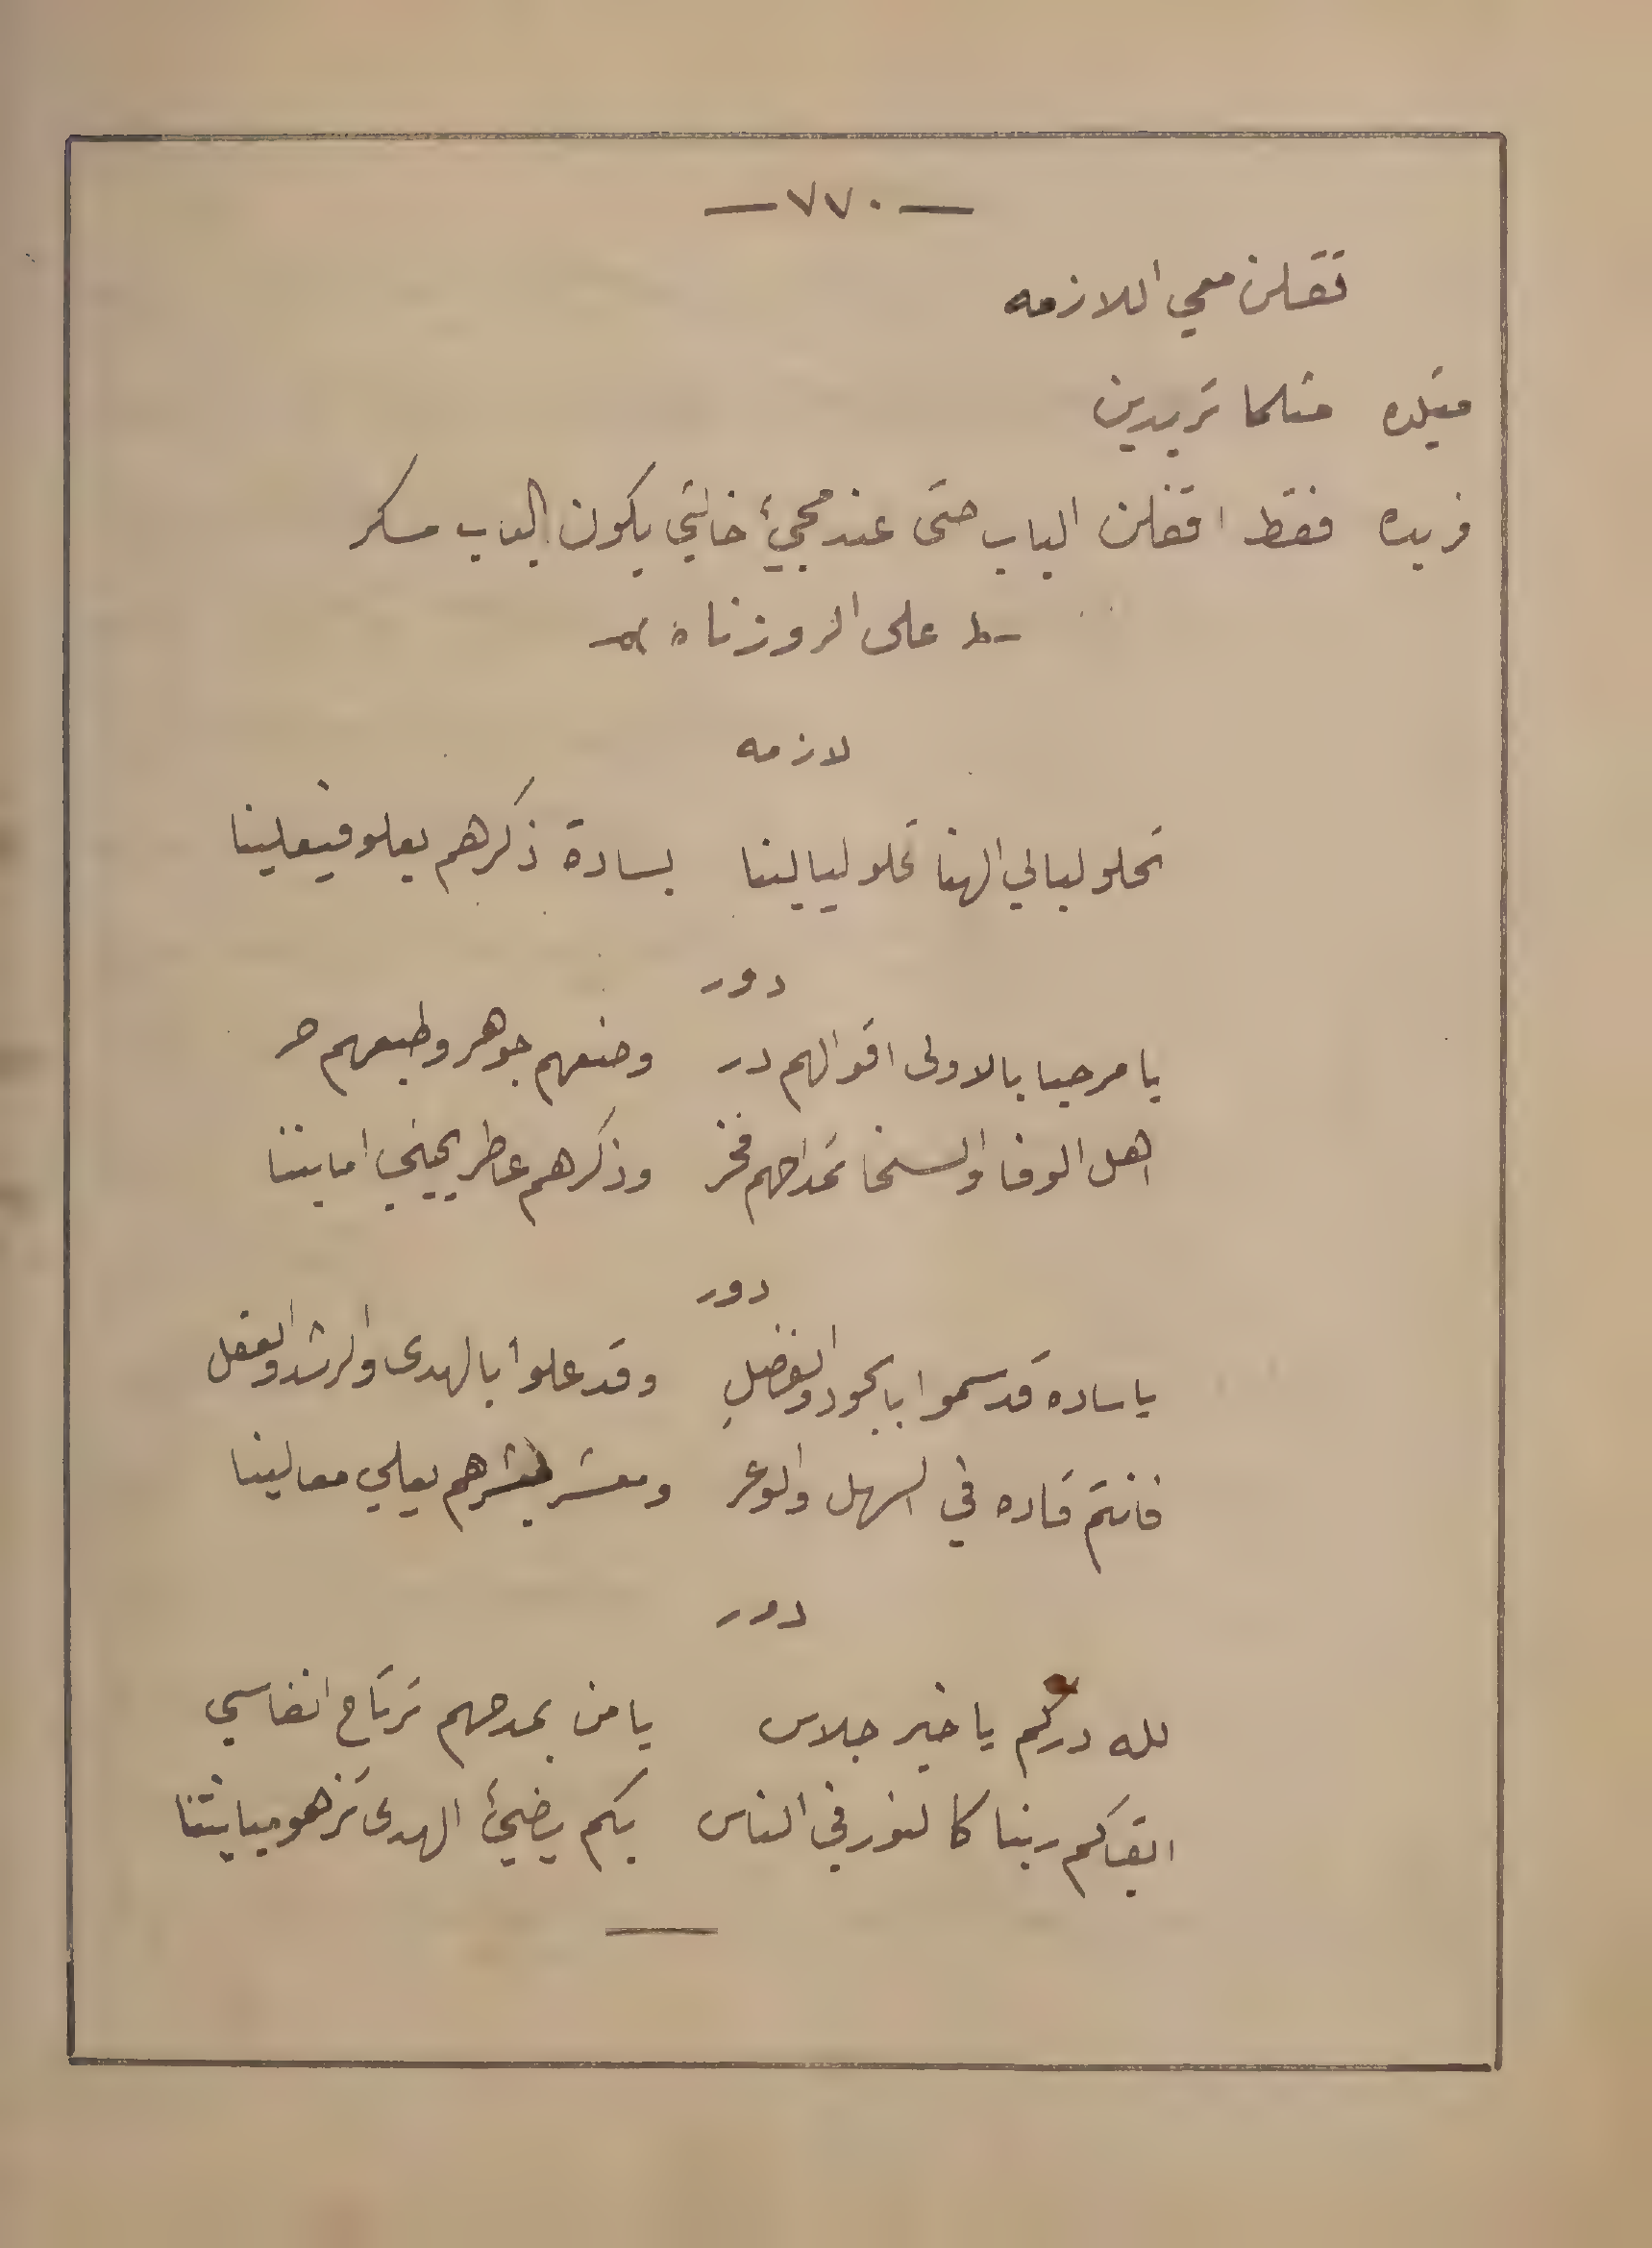 — ٧٧٠ —
تقلن معي اللازمه
مثلما تريدين
فريده فقط اقفلن الباب حتى عند مجيئ خالتي يكون الباب مسكر
على الروزناه
لازمه
تحلو ليالي الهنا تحلو ليالينا بسادة ذكرهم يعلو فيعلينا
دور
يا مرحبا بالاولى اقوالهم در وضعهم جوهر وطبعهم حر
اهل الوفا والسخا تمداحهم فخر وذكرهم عاطر يحيي امانينا
دور
يا ساده قد سموا بالجود والفضلِ وقد علوا بالهدى والرشد والعقل
فانتم قاده في السهل والوعر ومعشر بشرهم يعلي معالينا
دور
لله دركم يا خير جلاس يا من بمدحهم ترتاح انفاسي
ابقاكم ربنا كالنور في الناس بكم يضيئ الهدى تزهو